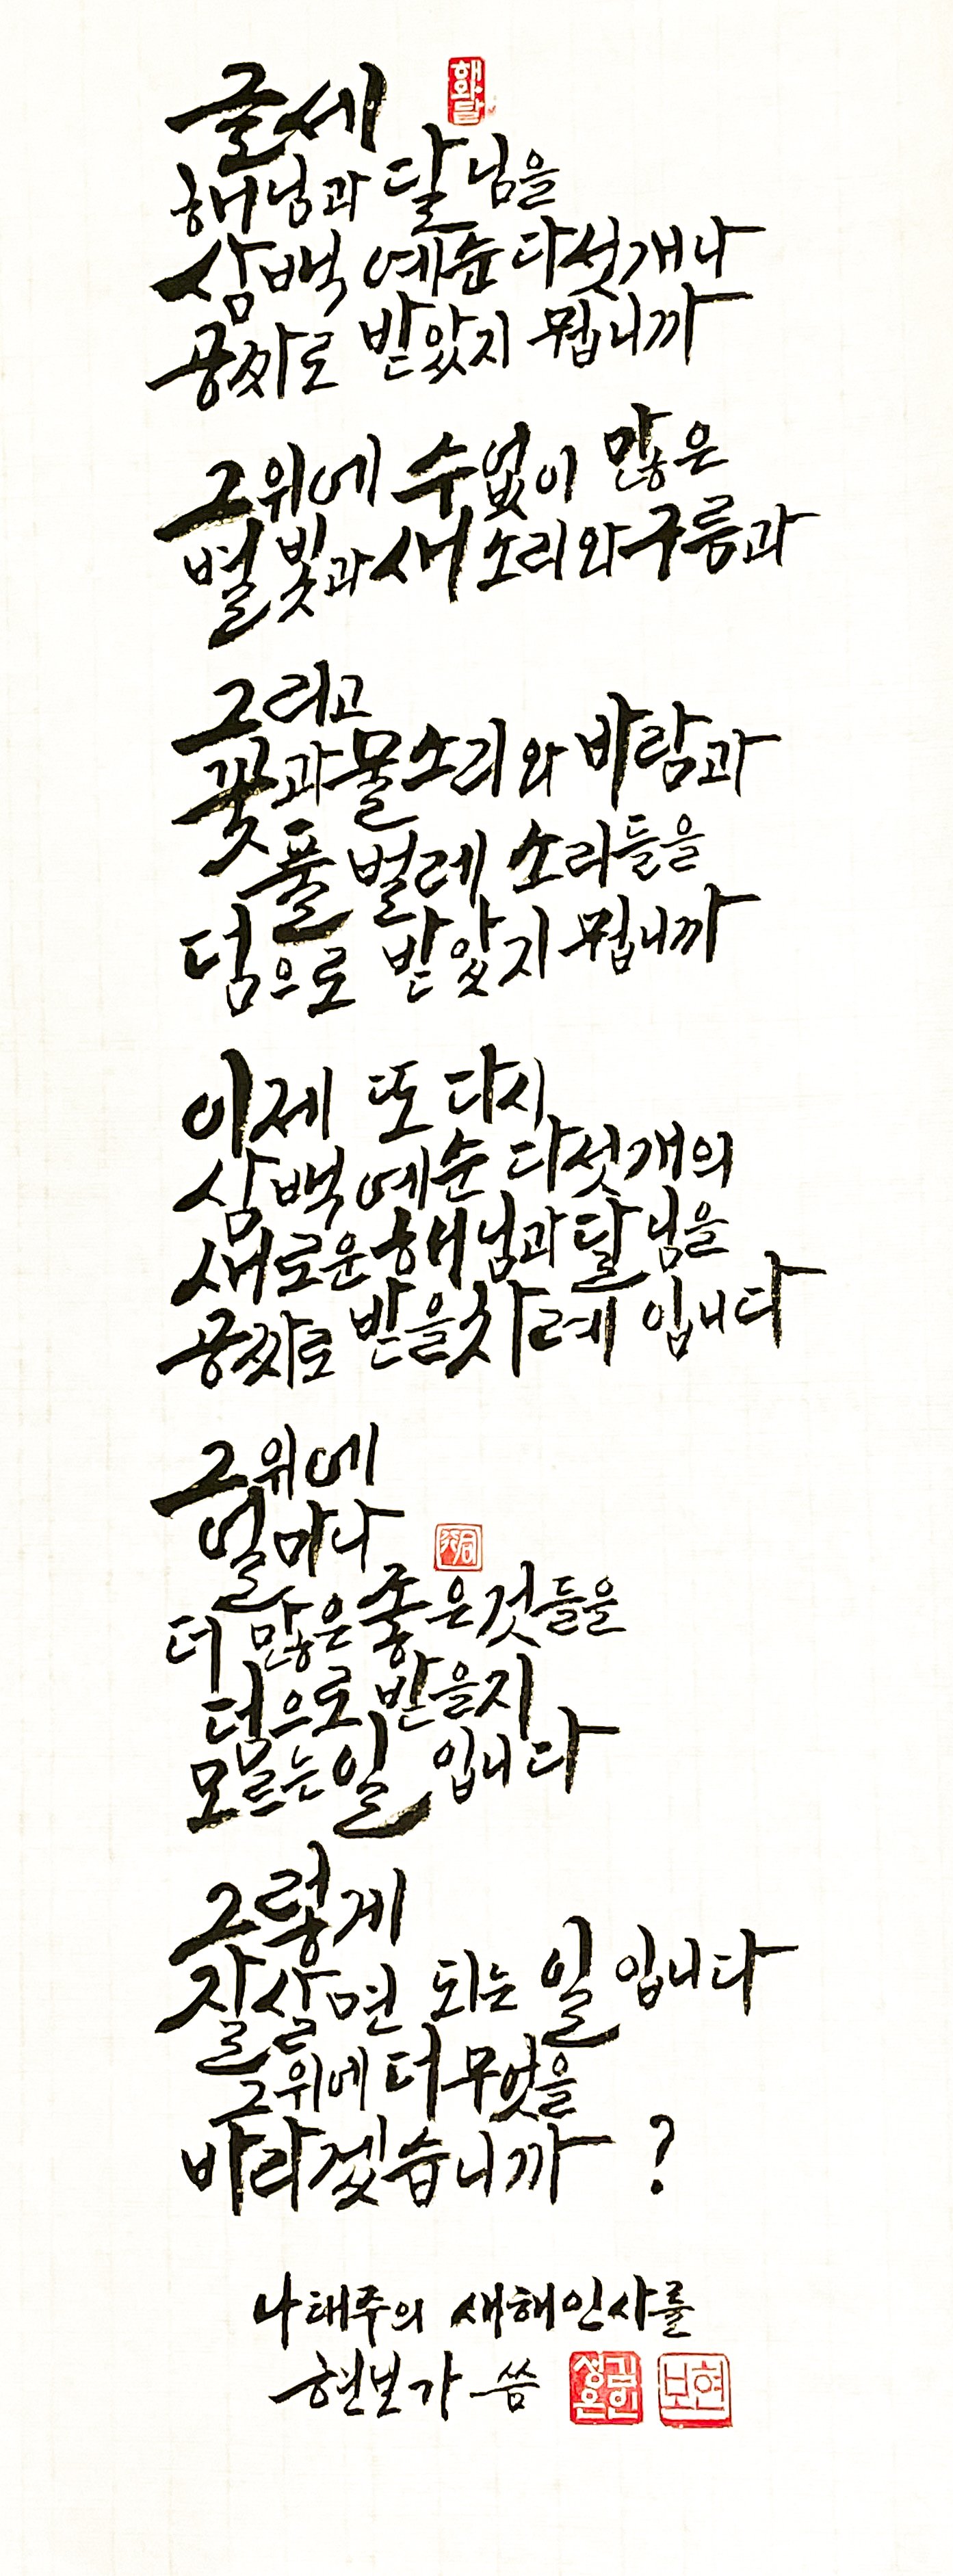 글세
해와달
해님과 달님을
삼백 예순 다섯개나
공짜로 받았지 뭡니까
그위에 수없이 많은
별빛과 새소리와 구름과
그리고
꽃과 물소리와 바람과
풀벌레 소리들을
덤으로 받았지 뭡니까
이제 또 다시
삼백 예순 다섯개의
새로운 해님과 달님을
공짜로 받을 차례 입니다
그위에
얼마나
더 많은 좋은것들을
덤으로 받을지
모르는 일 입니다
그렇게
잘살면 되는 일 입니다
그위에 더 무엇을
바라겠습니까 ?
나태주의 새해인사를
현보가 씀
현보